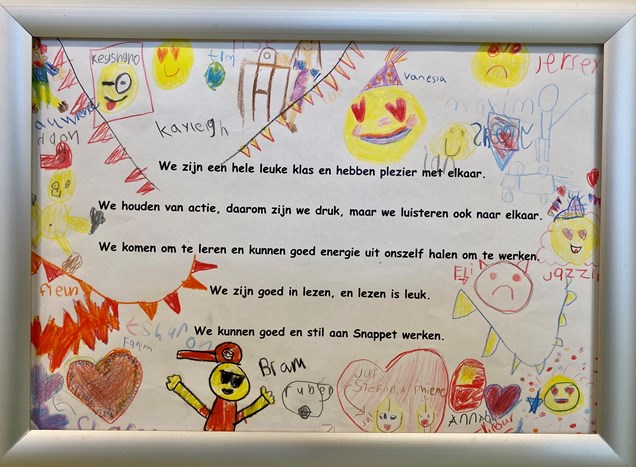 Keyshano
Tim
Vanessa
Jersey
Kayleigh
Ian
We zijn een hele leuke klas en hebben plezier met elkaar.
We houden van actie, daarom zijn we druk, maar we luisteren ook naar elkaar.
We komen om te leren en kunnen goed energie uit onszelf halen om te werken.
Fleur
We zijn goed in lezen, en lezen is leuk.
We kunnen goed en stil aan Snappet werken.
Bram
ruben
Juf